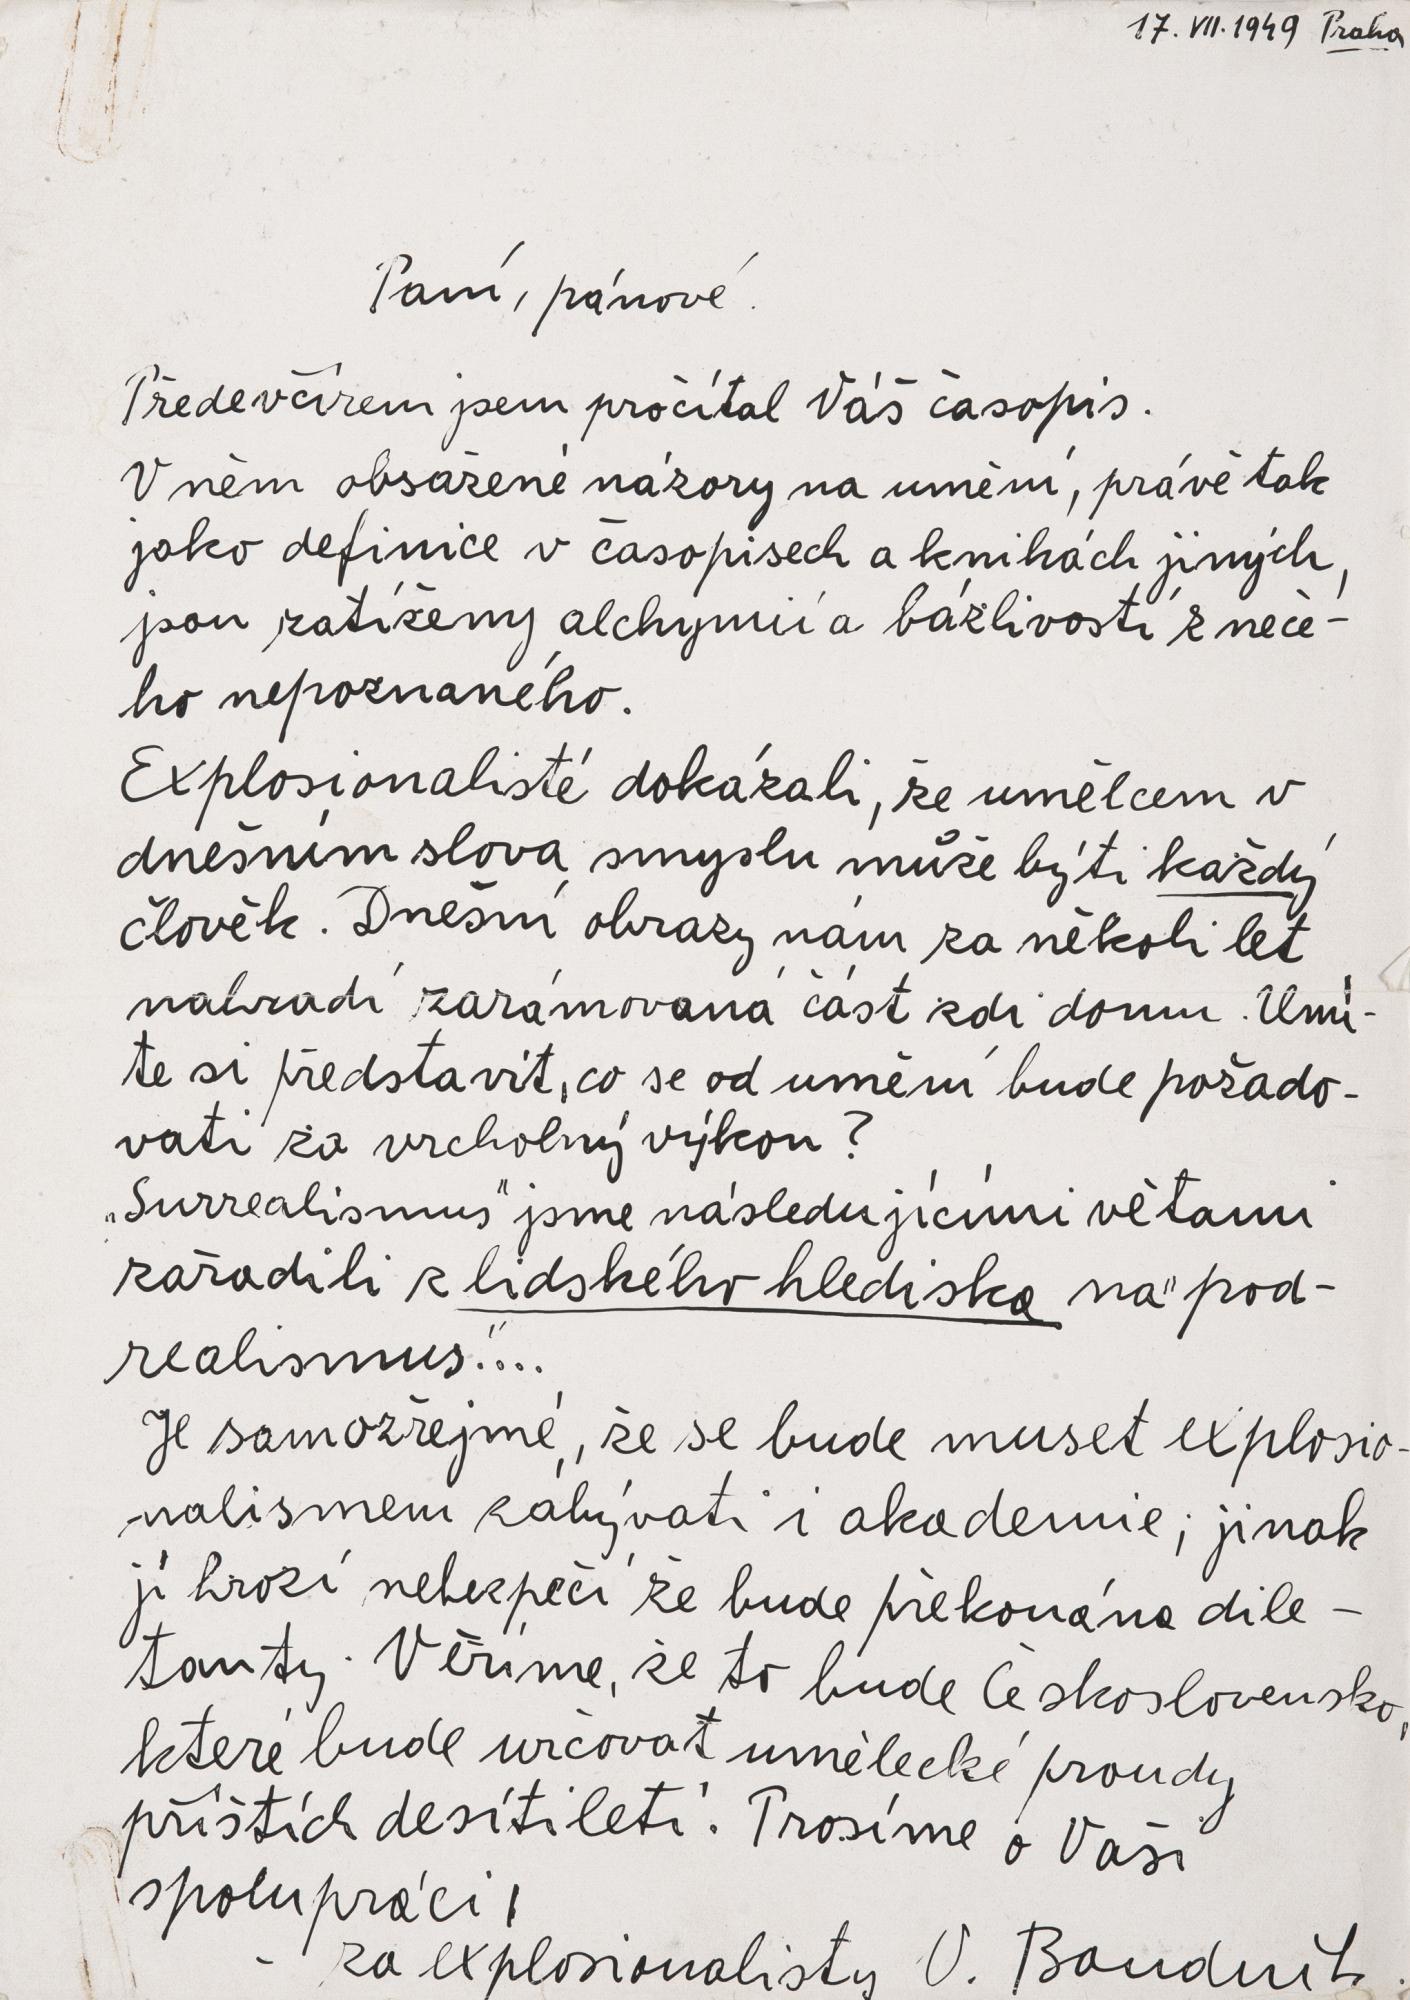 17. VII. 1949 Praha
Paní, pánové.
Předevčírem jsem pročítal Váš časopis.
V něm obsažené názory na umění, právě tak
jako definice v časopisech a knihách jiných,
jsou zatíženy alchymií a bázlivostí z nečé-
ho nepoznaného.
Explosionalisté dokázali, že umělcem v
dnešním slova smyslu může býti každý
člověk. Dnešní obrazy nám za několi let
nahradí zarámovaná část zdi domu. Umí-
te si představit, co se od umění bude požado-
vati za vrcholný výkon?
„Surrealismus" jsme následujícími větami
zařadili z lidského hlediska na "pod-
realismus"....
Je samozřejmé, že se bude muset explosio-
nalismem zabývati i akademie; jinak
jí hrozí nebezpečí že bude překonána dile-
tanty. Věříme, že to bude Československo,
které bude určovat umělecké proudy
příštích desítiletí. Prosíme o Vaši
spolupráci!
- za explosionalisty V. Boudník.